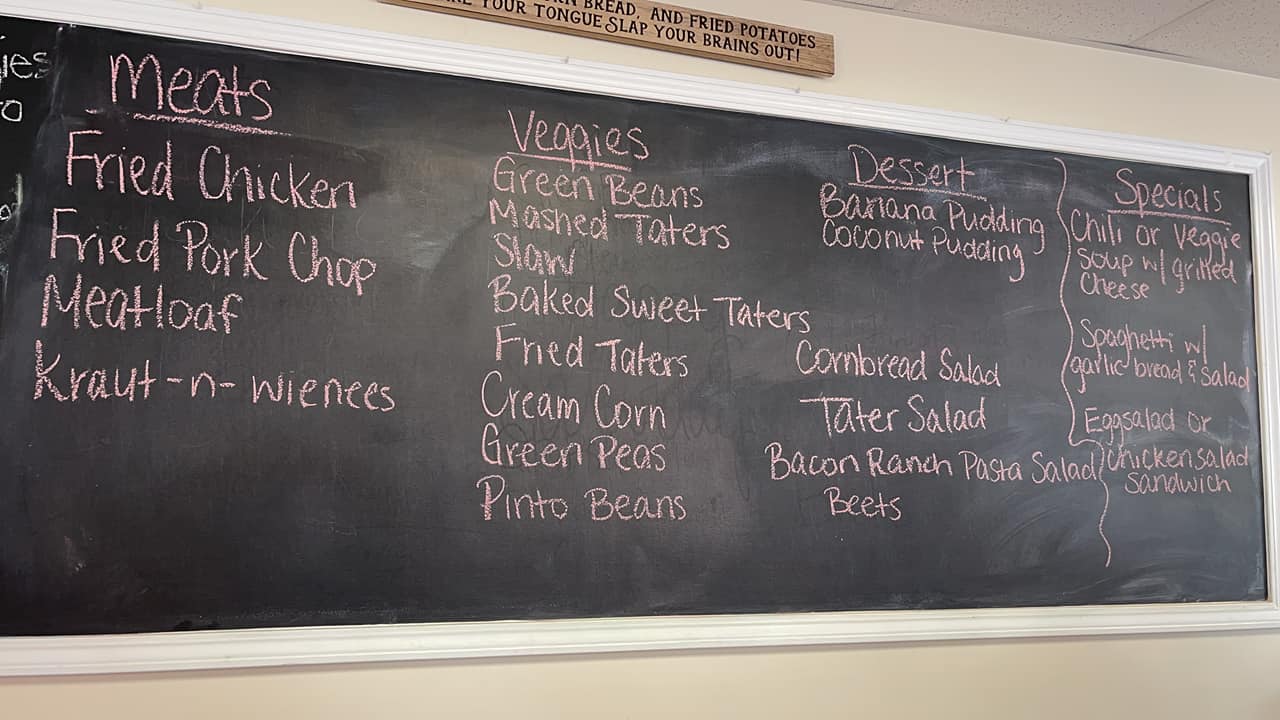 BREAD, AND FRIED POTATOES
YOUR TONGUE SLAP YOUR BRAINS OUT!
ies
Meats
Fried Chicken
Fried Pork Chop
Meatloaf
Kraut-n-wienees
Veggies
Green Beans
Mashed Taters
Slaw
Baked Sweet Taters
Fried Taters
Cream Corn
Green Peas
Pinto Beans
Dessert
Banana Pudding
Coconut Pudding
Cornbread Salad
Tater Salad
Bacon Ranch Pasta Salad
Beets
Specials
Chili or Veggie
soup w/ grilled
Cheese
Spaghetti w/
garlic bread & Salad
Eggsalad or
Chickensalad
Sandwich